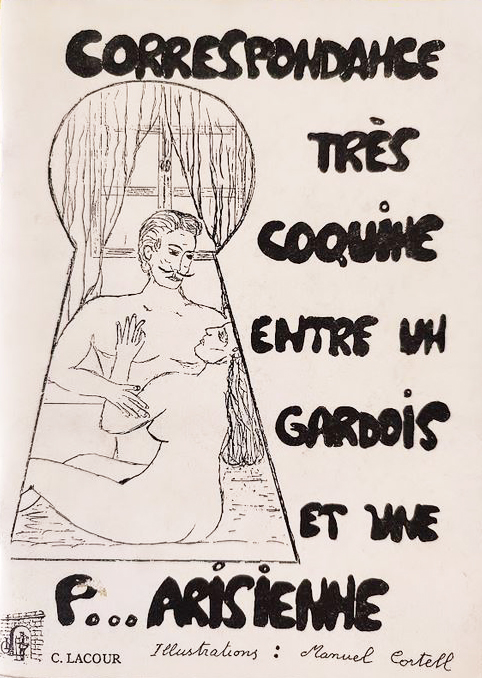 CORRESPONDANCE
TRÈS
COQUINE
ENTRE UN
GARDOIS
ET UNE
P...ARISIENNE
C. LACOUR
Illustrations : Manuel Cortell